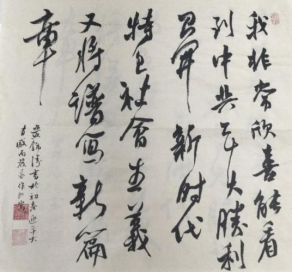 我非常欣喜能看
到中共十九大胜利
召开新时代
特色社會主義
又将譜寫新篇
章